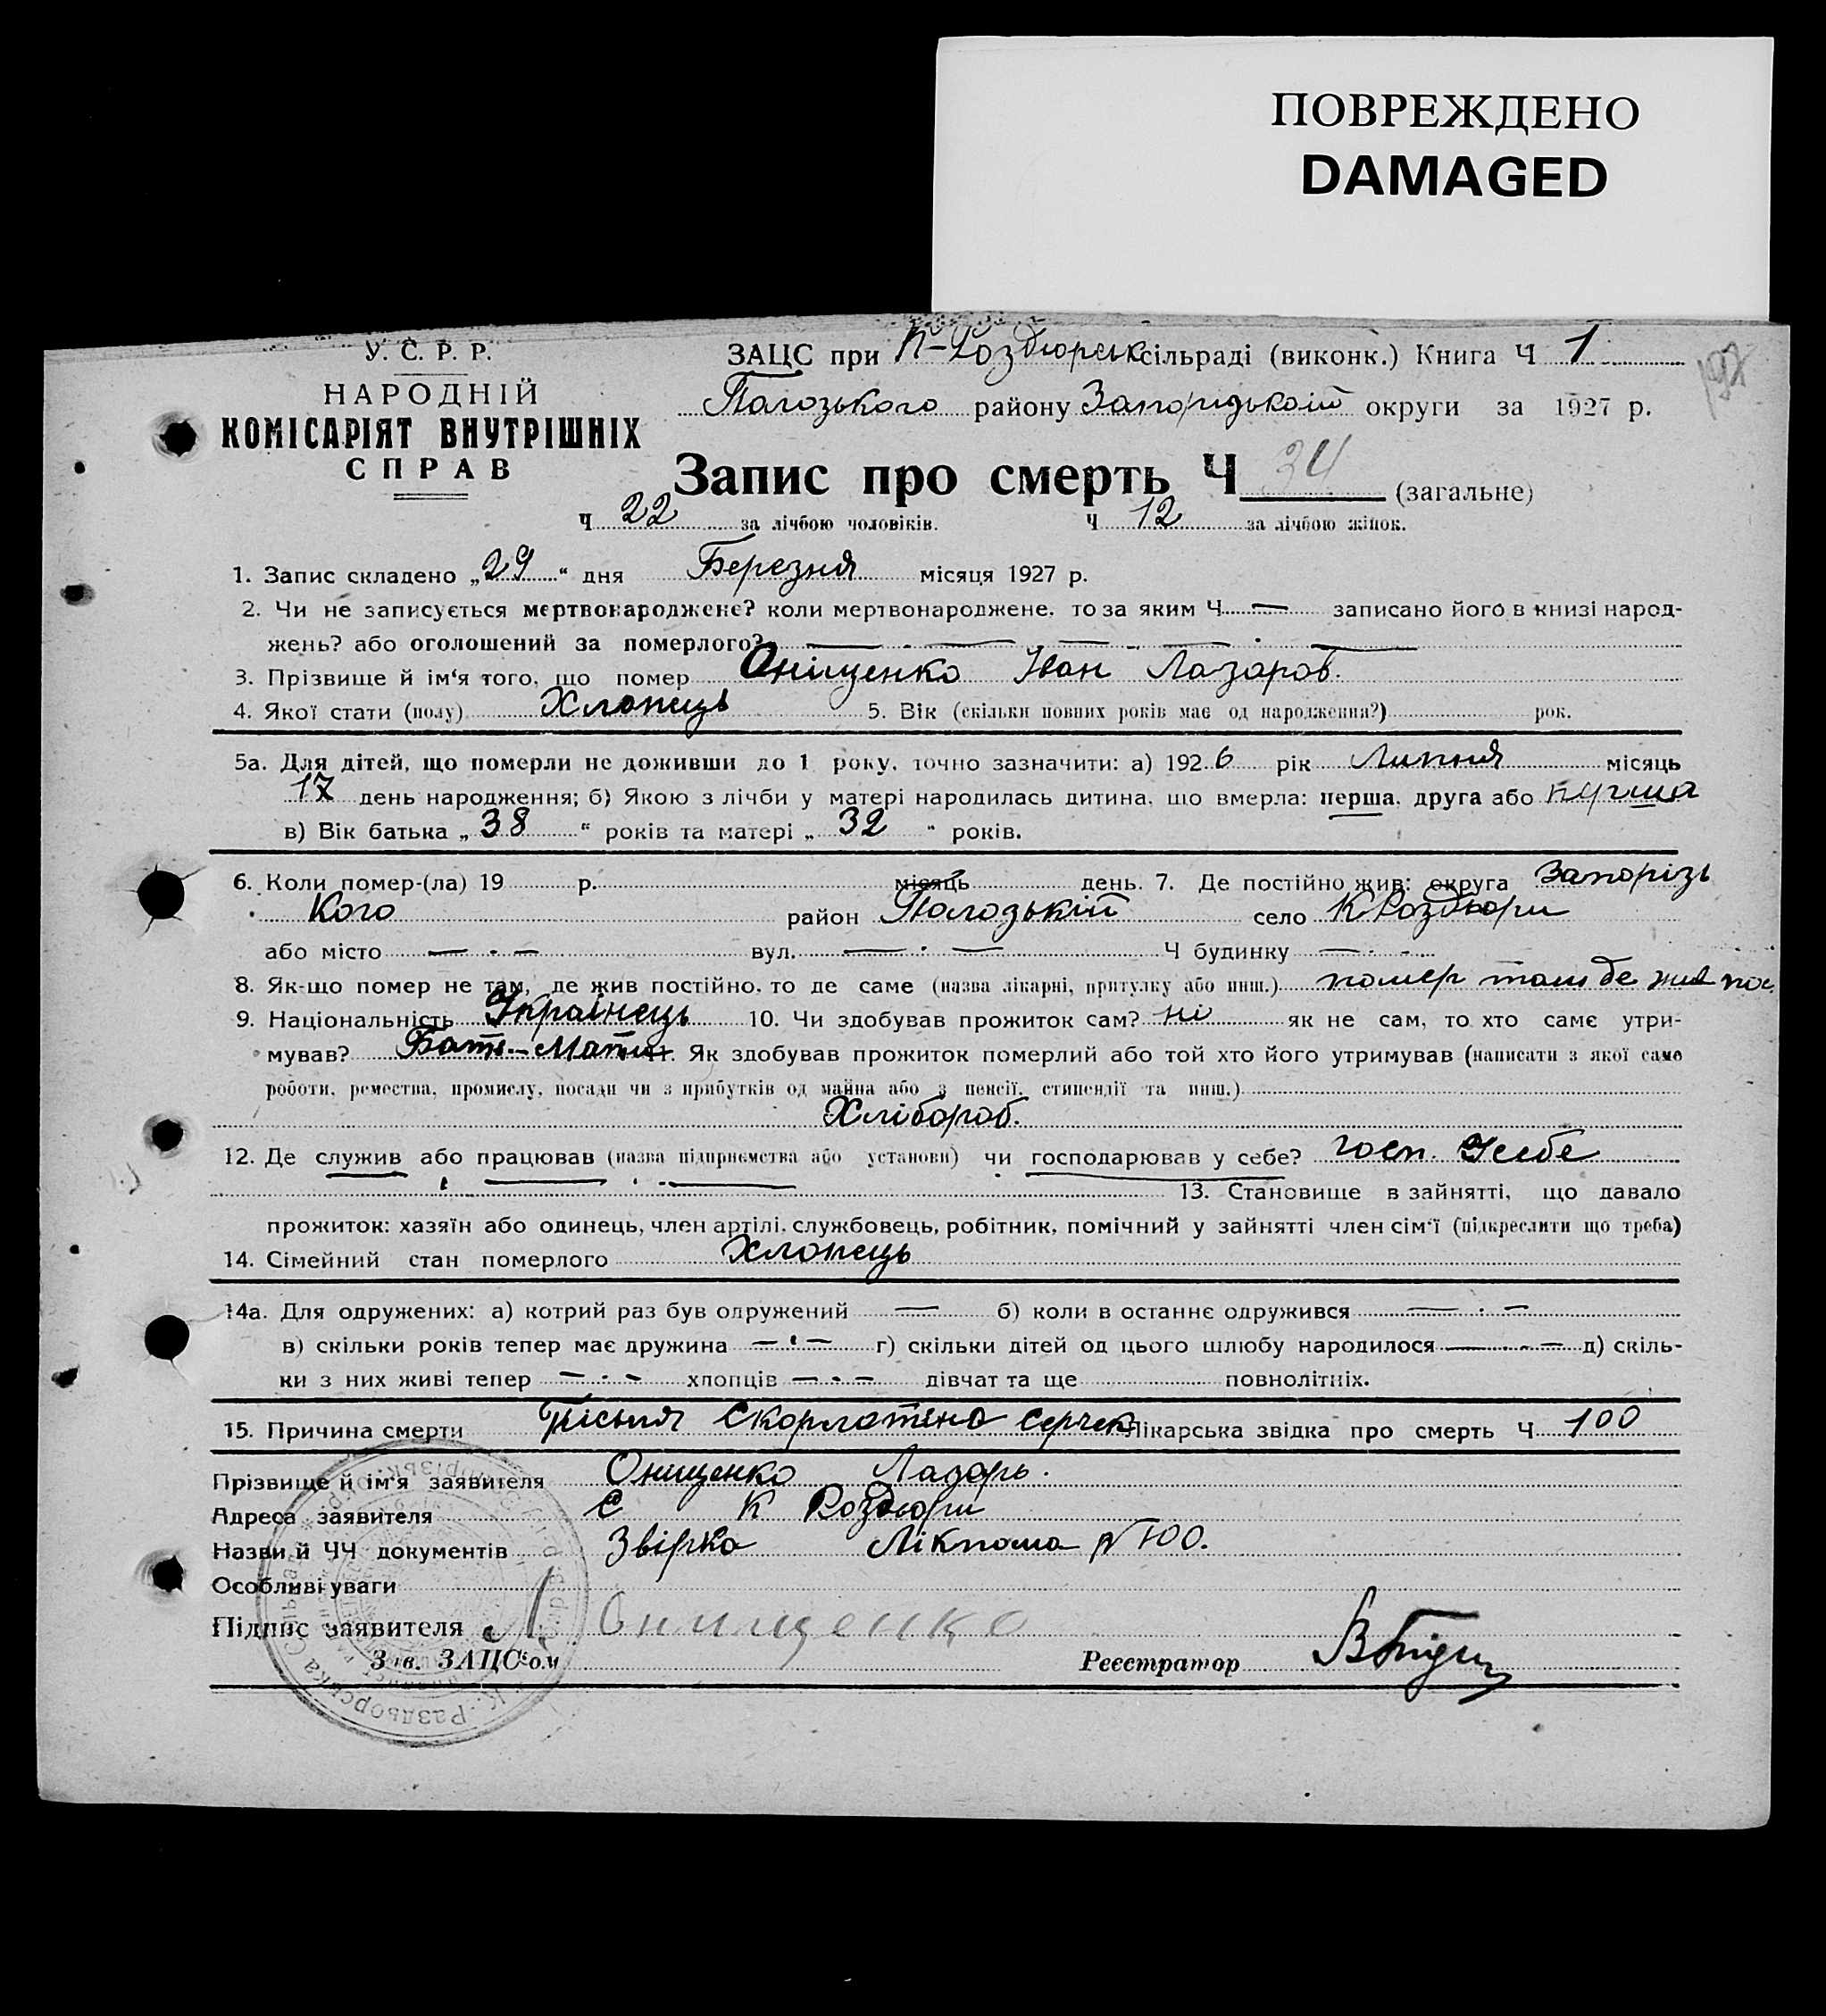 ПОВРЕЖДЕНО
DAMAGED
У. С. Р. Р.
НАРОДНІЙ
КОМІСАРІЯТ ВНУТРІШНІХ
СПРАВ
ЗАЦС при К-Роздорськ сільраді (виконк.) Книга Ч 1
197
Пологзького району Запорідькоій округи за 1927 р.
Запис про смерть Ч 34 (загальне)
Ч 22 за лічбою чоловіків. Ч 12 за лічбою жінок.
1. Запис складено „29“ дня Березня місяця 1927 р.
2. Чи не записується мертвонароджене? коли мертвонароджене, то за яким Ч — записано його в книзі народ-
жень? або оголошений за померлого?
3. Прізвище й ім'я того, що помер Оніщенко Іван Лазаров.
4. Якої стати (полу) Хлопець 5. Вік (скільки повних років має од народження?) рок.
5а. Для дітей, що померли не доживши до 1 року, точно зазначити: а) 1926 рік Липня місяць
17 день народження; б) Якою з лічби у матері народилась дитина, що вмерла: перша, друга або
в) Вік батька „38“ років та матері „32“ років.
6. Коли помер-(ла) 19 р. місяць день. 7. Де постійно жив: округа Запорізь
Кого район село К Роздори
або місто — · — вул. — · — Ч будинку — · —
8. Як-що помер не там, де жив постійно, то де саме (назва лікарні, притулку або инш.) помер там де жив пос.
9. Національність Українець 10. Чи здобував прожиток сам? ні як не сам, то хто саме утри-
мував? Бать-Мати. Як здобував прожиток померлий або той хто його утримував (написати з якої саме
роботи, ремества, промислу, посади чи з прибутків од майна або з пенсії, стипендії та инш.)
Хлібороб.
12. Де служив або працював (назва підприємства або установи) чи господарював у себе? госп. Усебе
13. Становище в зайнятті, що давало
прожиток: хазяїн або одинець, член артілі, службовець, робітник, помічний у зайнятті член сім'ї (підкреслити що треба)
14. Сімейний стан померлого Хлопець
14а. Для одружених: а) котрий раз був одружений — б) коли в останнє одружився — · —
в) скільки років тепер має дружина — · — г) скільки дітей од цього шлюбу народилося — · — д) скіль-
ки з них живі тепер — · — хлопців — · — дівчат та ще повнолітніх.
15. Причина смерти Скорлотина Лікарська звідка про смерть Ч 100
Прізвище й ім'я заявителя Онищенко Лазарь.
Адреса заявителя С К Роздори
Назви й ЧЧ документів Звірка Лікпома № 100.
Особливі уваги
Підпис заявителя Л Онищенко
Зав. ЗАЦС'ом Реєстратор